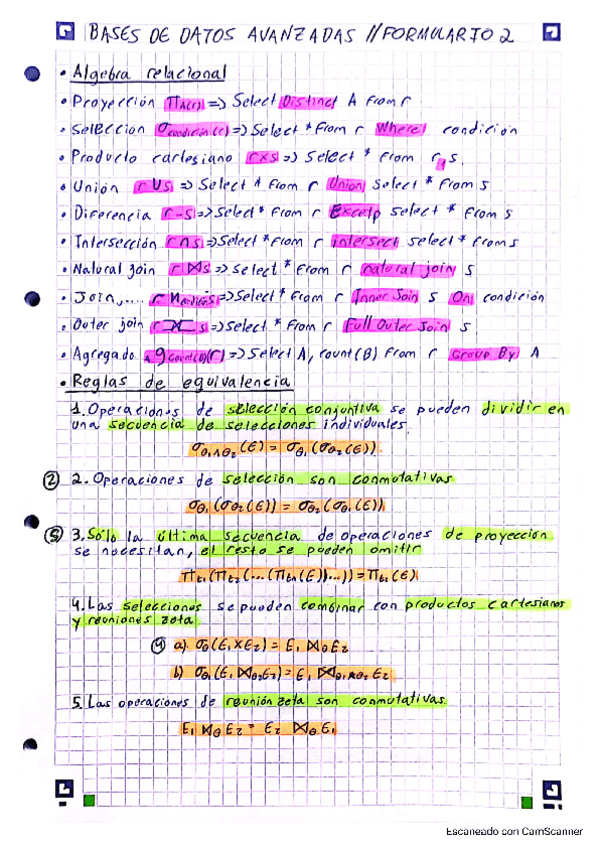 BASES DE DATOS AVANZADAS // FORMULARIO 2
• Algebra relacional
• Proyección Π A(r) => Select Distinct A from r
• Selección σ condición (r) => Select * from r Where condición
• Producto cartesiano r x s => Select * from r, s.
• Unión r U s => Select A from r Union Select * from s
• Diferencia r - s => Select * from r Excetp select * from s
• Intersección r ∩ s => Select * from r intersect select * from s
• Natural join r ⋈ s => Select * from r natural join s
• Join, ... r ⋈ s => Select * from r Inner Join s On condición
• Outer join r ⟗ s => Select * from r Full Outer Join s
• Agregado A g count(B) (r) => Select A, count(B) from r Group By A
• Reglas de equivalencia
1. Operaciones de selección conjuntiva se pueden dividir en
una secuencia de selecciones individuales
σθ1∧θ2(E) = σθ1(σθ2(E))
② 2. Operaciones de selección son conmutativas
σθ1(σθ2(E)) = σθ2(σθ1(E))
⑤ 3. Sólo la última secuencia de operaciones de proyección
se necesitan, el resto se pueden omitir
Πt1(Πt2(...(Πtn(E))...)) = Πt1(E)
4. Las selecciones se pueden combinar con productos cartesianos
y reuniones zeta
④ a). σθ(E1 x E2) = E1 ⋈θ E2
b) σθ1(E1 ⋈θ2 E2) = E1 ⋈θ1∧θ2 E2
5. Las operaciones de reunión zeta son conmutativas.
E1 ⋈θ E2 = E2 ⋈θ E1
Escaneado con CamScanner